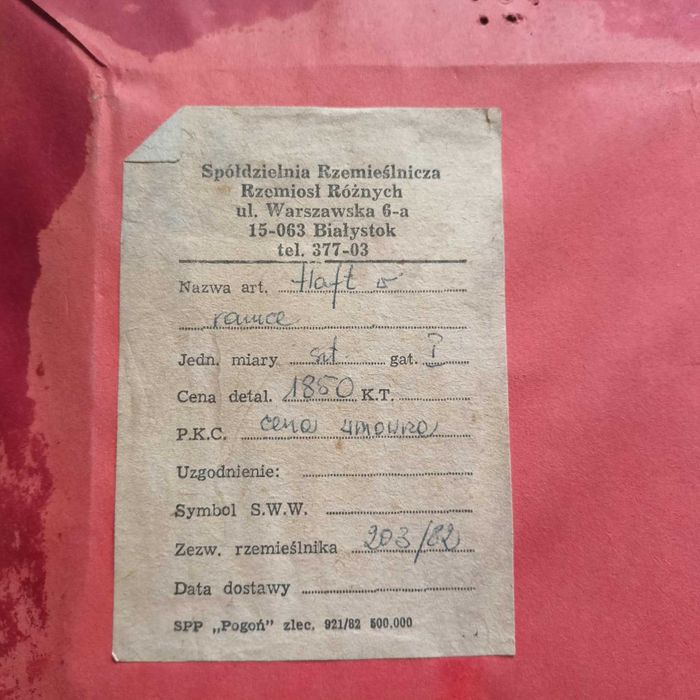 Spółdzielnia Rzemieślnicza
Rzemiosł Różnych
ul. Warszawska 6-a
15-063 Białystok
tel. 377-03
Nazwa art. Haft w
ramce
Jedn. miary szt gat. I
Cena detal. 1850 K.T.
P.K.C. cena umowna
Uzgodnienie:
Symbol S.W.W.
Zezw. rzemieślnika 203/82
Data dostawy
SPP „Pogoń" zlec. 921/82 500.000